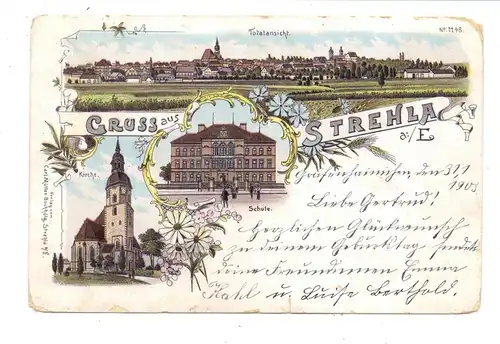 Totalansicht.
Nr. 7748.
GRUSS aus STREHLA
a./E
Kirche.
Schule.
Gräfenhainichen, den 31/1
1901
Liebe Gertrud!
Herzlichen Glückwunsch
zu deinem Geburtstag sendete
deine Freundinnen Emma
Kahl u. Luise Berthold.